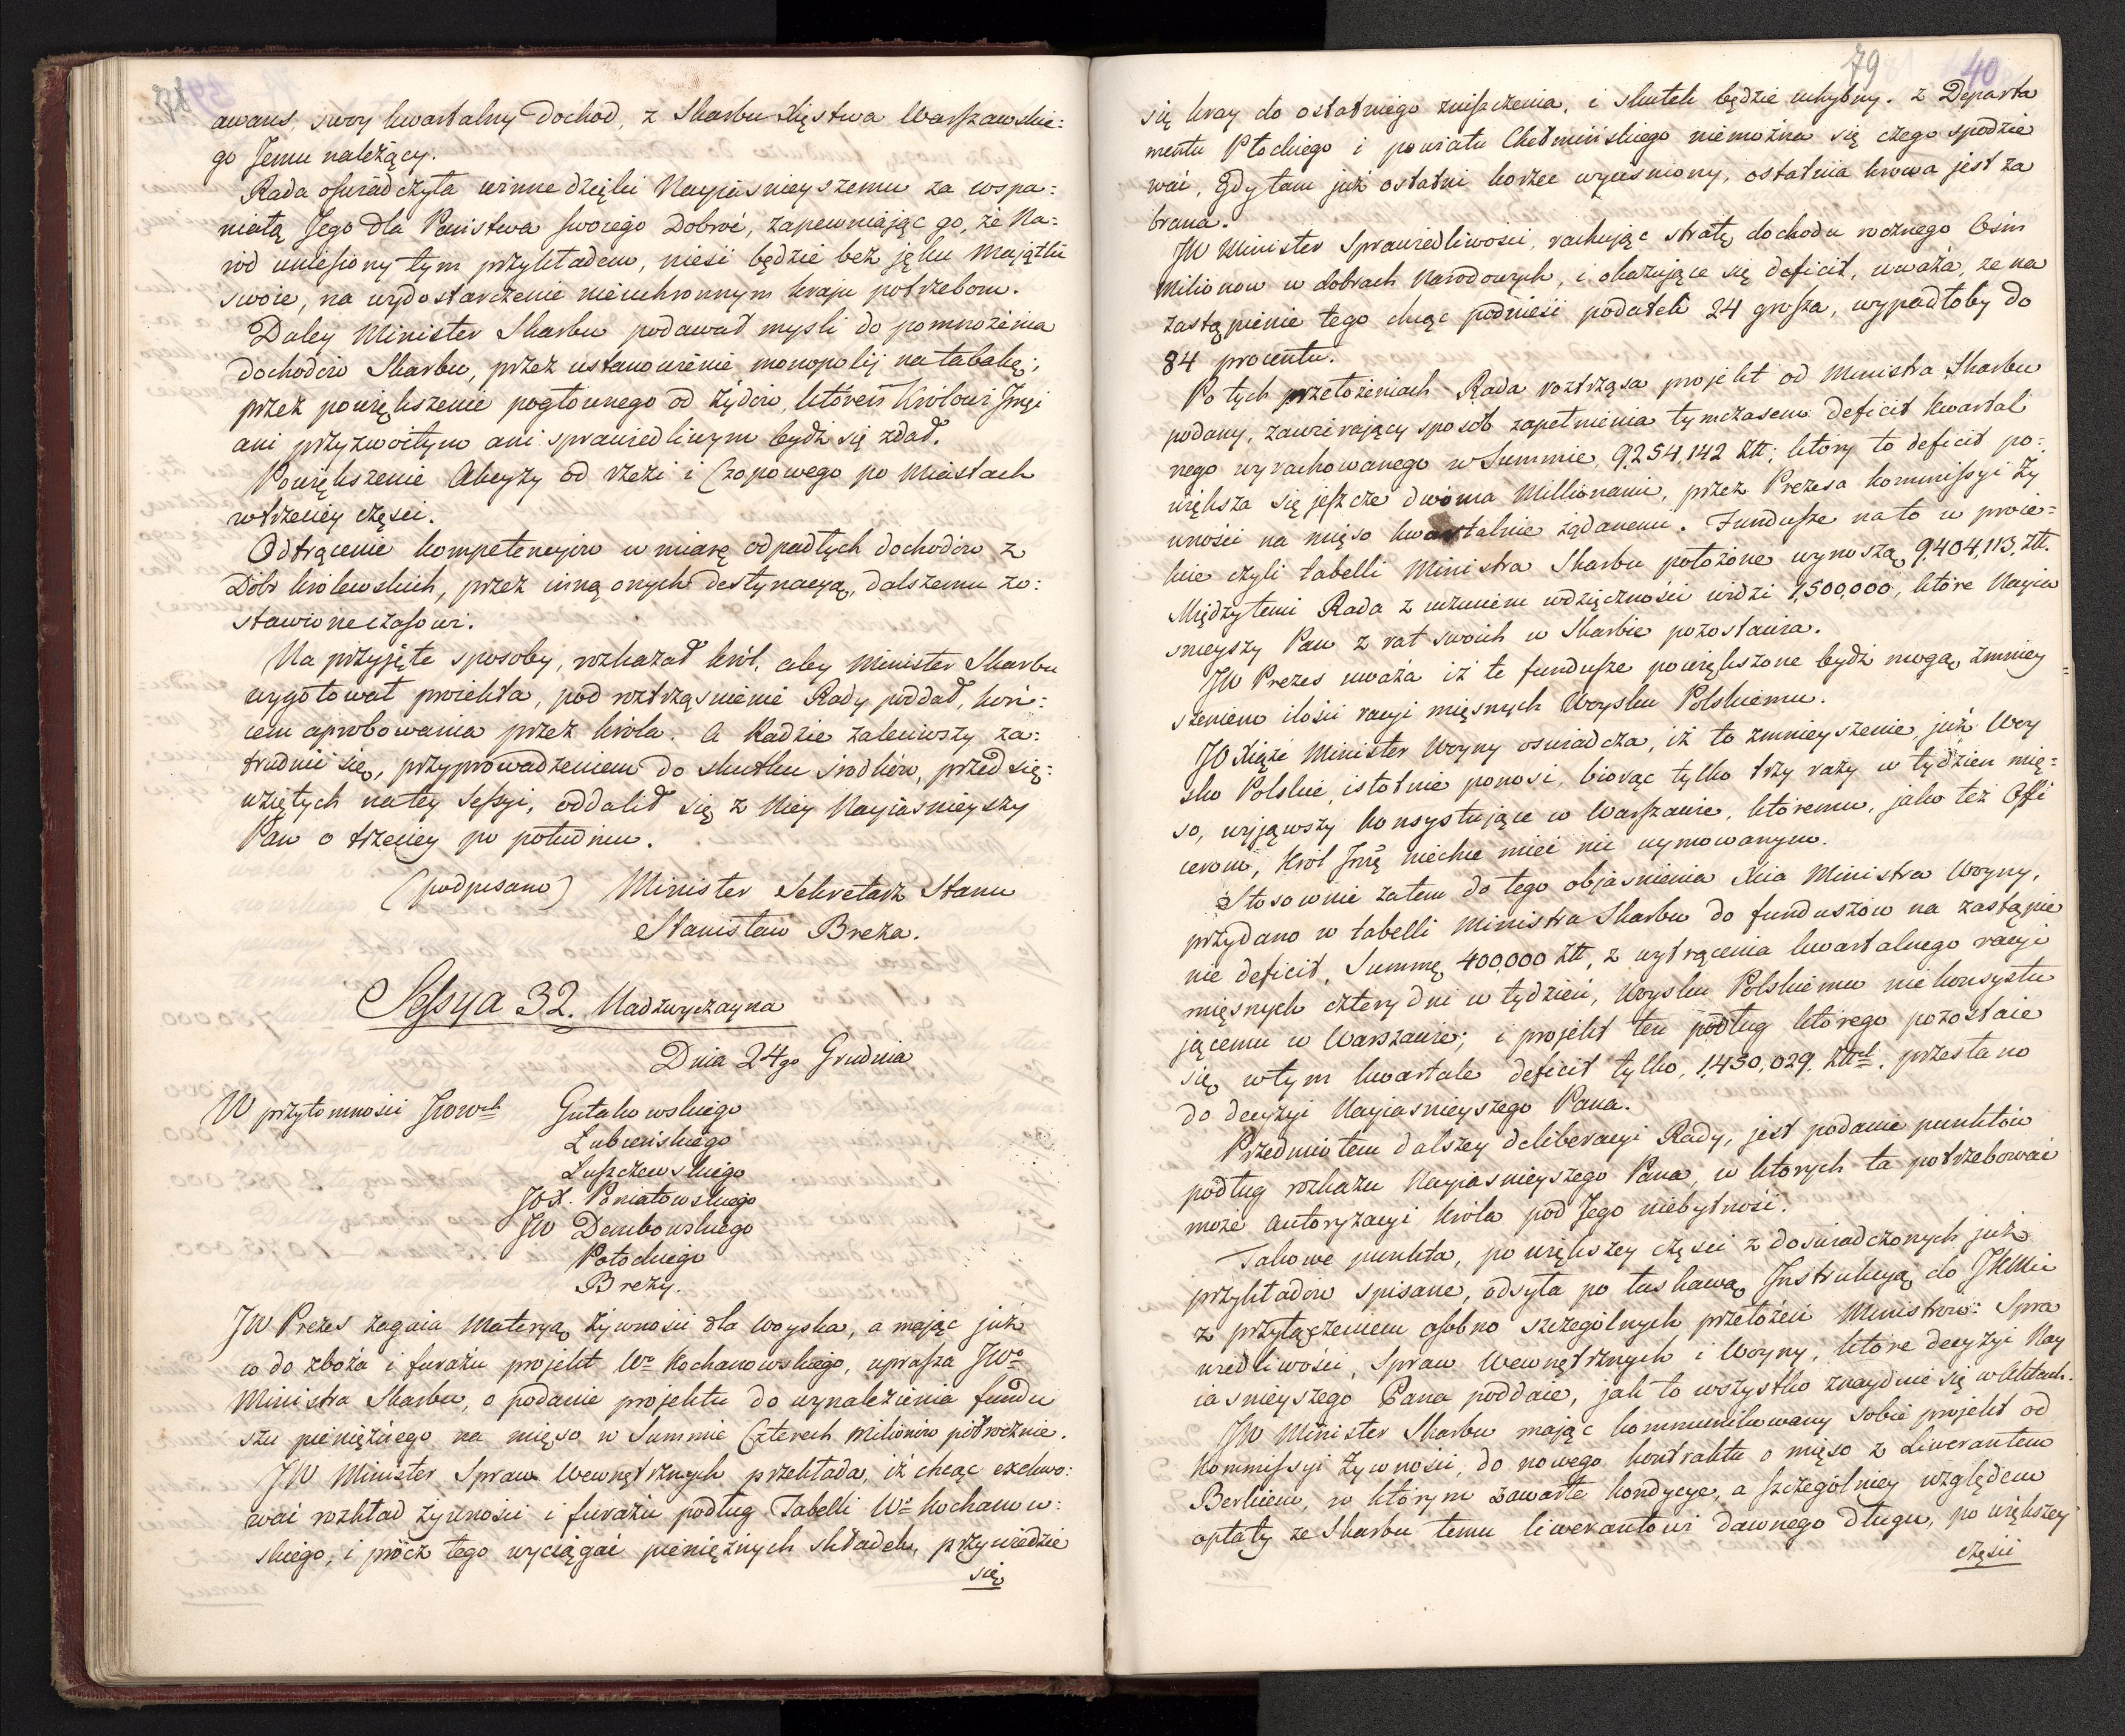 78
awans, swoy kwartalny dochod, z Skarbu Xięstwa Warszawskie=
go Jemu należący.
Rada oświadczyła winne dzięki Nayiaśnieyszemu za wspa=
niałą Jego dla Państwa swoiego dobroć, zapewniając go, że Na=
ród uniesiony tym przykładem, nieść będzie bez jęku Majątki
swoie, na wydostarczenie nieuchronnym kraju potrzebom.
Daley Minister Skarbu podawał mysli do pomnożenia
dochodów Skarbu, przez ustanowienie monopolij na tabakę;
przez powiększenie pogłównego od Żydów, któreń Królowi Jmci
ani przyzwoitym ani sprawiedliwym bydź się zdał.
Powiększenie Akcyzy od rzezi i Czopowego po Miastach
w trzeciey części.
Odtrącenie kompetencyiow w miarę odpadłych dochodów z
Dóbr królewskich, przez inną onych destynacyą, dalszemu zo=
stawione czasowi.
Na przyjęte sposoby, rozkazał król, aby Minister Skarbu
wygotował proiekta, pod roztrząsnienie Rady poddał, koń=
cem aprobowania przez króla. A Radzie zaleciwszy za=
trudnić się, przyprowadzeniem do skutku środków, przedsię=
wziętych na tey Sessyi, oddalił się z Niey Nayiaśnieyszy
Pan o trzeciey po południu.
(podpisano) Minister Sekretarz Stanu
Stanisław Breza.
Sessya 32. Nadzwyczayna
Dnia 24go Grudnia
W przytomności JWWch Gutakowskiego
Łubieńskiego
Łuszczewskiego
JOX. Poniatowskiego
JW Dembowskiego
Potockiego
Brezy.
JW Prezes zagaia Materyą żywności dla Woyska, a mając już
co do zboża i furażu projekt Wo Kochanowskiego, uprasza JWo
Ministra Skarbu, o podanie projektu do wynalezienia fundu
szu pieniężnego na mięso w Summie Czterech Milionów półrocznie.
JW Minister Spraw Wewnętrznych przekłada, iż chcąc exekwo=
wać rozkład żywności i furażu podług Tabelli Wo Kochanow=
skiego, i prócz tego wyciągać pieniężnych składek, przywiedzie
się
79 40
się kray do ostatniego zniszczenia, i skutek będzie uchybny. z Departa
mentu Płockiego i powiatu Chełmińskiego niemożna się czego spodzie
wać, gdy tam już ostatni korzec wyciśniony, ostatnia krowa jest za
brana.
JW Minister Sprawiedliwosci, rachując stratę dochodu rocznego Ośm
Milionow w dobrach Narodowych, i okazujące się deficit, uważa, że na
zastąpienie tego chcąc podnieść podatek 24 grosza, wypadłoby do
84 procentu.
Po tych przełożeniach Rada roztrząsa projekt od Ministra Skarbu
podany, zawierający sposób zapełnienia tymczasem deficit kwartal
nego wyrachowanego w Summie, 9,254,142 Złł; który to deficit po=
większa się jeszcze dwóma Millionami, przez Prezesa Kommissyi Ży
wności na mięso kwartalnie żądanemi. Fundusze na to w proie=
kcie czyli tabelli Ministra Skarbu położone wynoszą 9,404,113, Złł.
Międzytemi Rada z uczuciem wdzięczności widzi 1,500,000, które Nayia
śnieyszy Pan z rat swoich w Skarbie pozostawia.
JW Prezes uważa iż te fundusze powiększone bydź mogą zmniey=
szeniem ilości racyi mięsnych Woysku Polskiemu.
JO Xiąże Minister Woyny oświadcza, iż to zmnieyszenie już Woy
sko Polskie, istotnie ponosi, biorąc tylko trzy razy w tydzien mię=
so, wyjąwszy konsystujące w Warszawie, któremu, jako też Offi
cerom, Król Jmć niechce mieć nic uymowanym.
Stosownie zatem do tego objaśnienia Xcia Ministra Woyny,
przydano w tabelli Ministra Skarbu do funduszów na zastąpie
nie deficit, Summę 400,000 Złł, z wytrącenia kwartalnego racyi
mięsnych cztery dni w tydzień, Woysku Polskiemu niekonsystu
jącemu w Warszawie; i projekt ten podług którego pozostaie
się wtym kwartale deficit tylko, 1,450,029, Złłch. przesłano
do decyzyi Nayiaśnieyszego Pana.
Przedmiotem dalszey deliberacyi Rady, jest podanie punktów
podług rozkazu Nayiaśnieyszego Pana, w ktorych ta potrzebować
może Autoryzacyi króla pod Jego niebytność.
Takowe punkta, po większey części z doświadczonych już
przykładów spisane, odsyła po łaskawą Instrukcyą do JKMci
z przyłączeniem osobno szczególnych przełożeń Ministrów: Spra
wiedliwości, Spraw Wewnętrznych i Woyny, które decyzyi Nay
iaśnieyszego Pana poddaie, jak to wszystko znaydnie się w Aktach.
JW Minister Skarbu mając kommunikowany sobie projekt od
Kommissyi Żywności, do nowego kontraktu o mięso z Liwerantem
Berkiem, w którym zawarte kondycye, a szczególniey względem
opłaty ze Skarbu temu liwerantowi dawnego długu, po większey
części